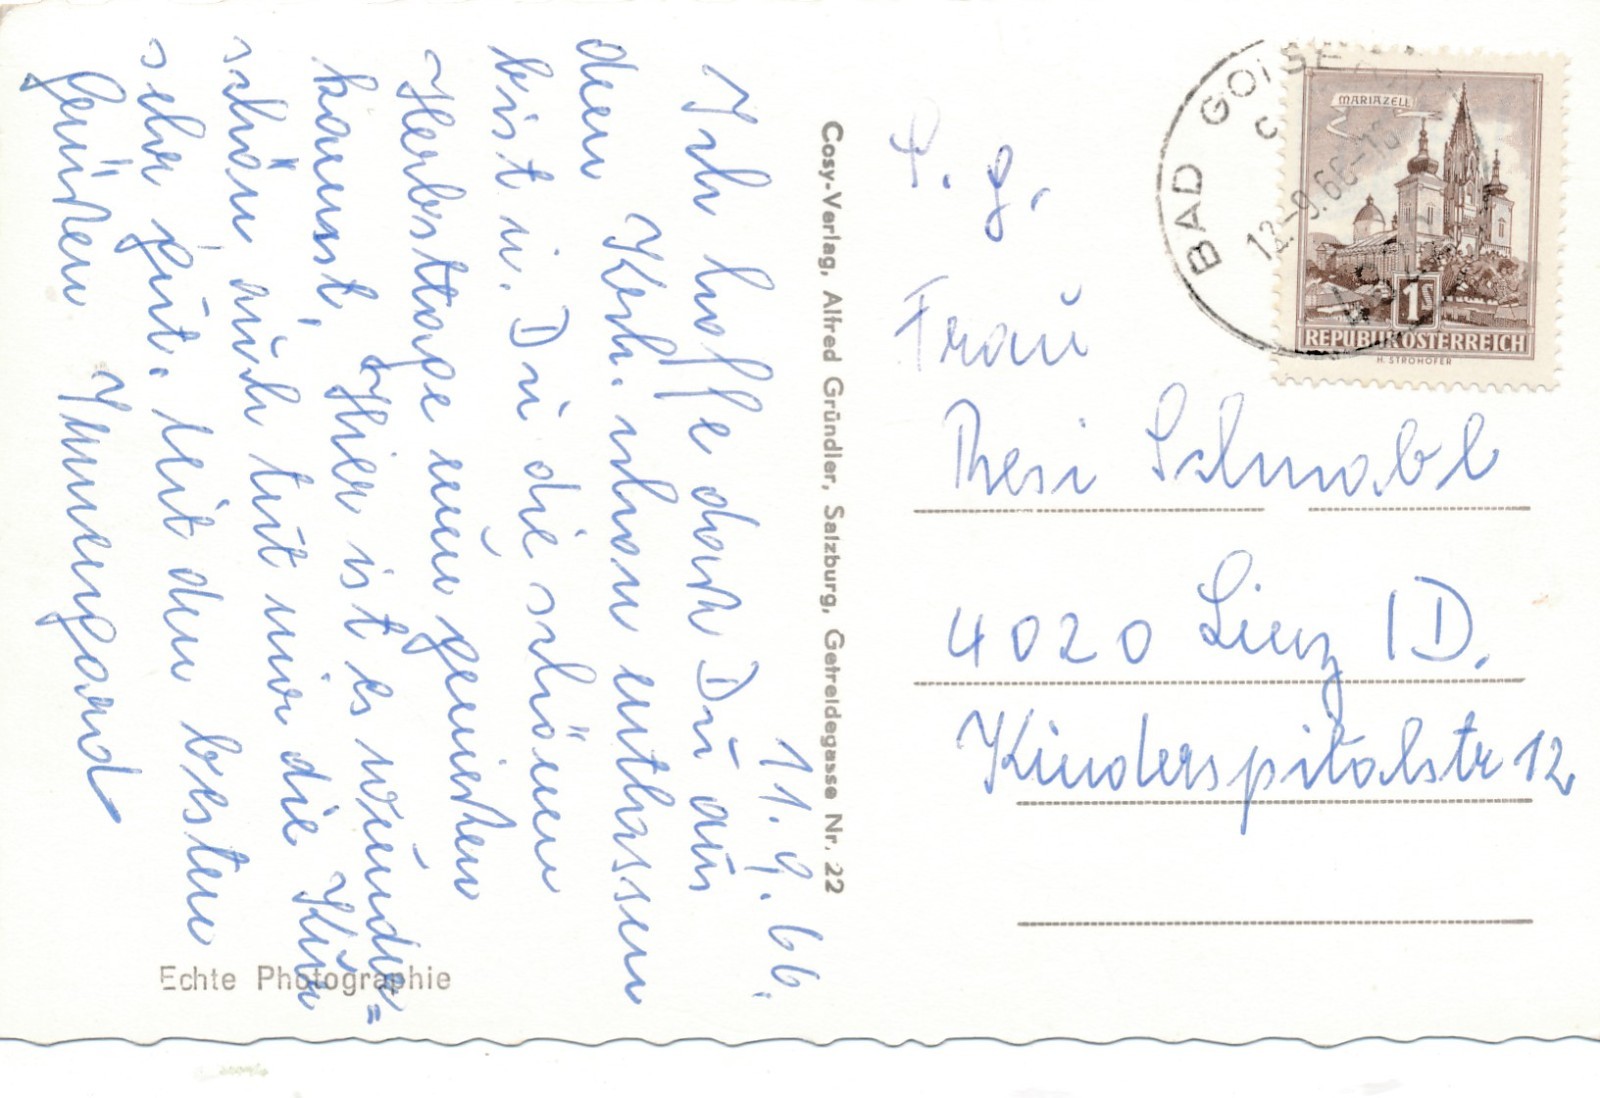 11. 9. 66.
Ich hoffe doch Du aus
dem Krkh. schon entlassen
bist u. Du die schönen
Herbsttage nun genießen
kannst. Hier ist es wunder=
schön, auch tut mir die Kur
sehr gut. Mit den besten
Grüßen Irmengard
Echte Photographie
Cosy-Verlag, Alfred Gründler, Salzburg, Getreidegasse Nr. 22
BAD GOISERN
12.-9.66-18
MARIAZELL
1S
REPUBLIK ÖSTERREICH
H. STROHOFER
Frau
Resi Schnabl
4020 Linz /D.
Kinderspitalstr 12